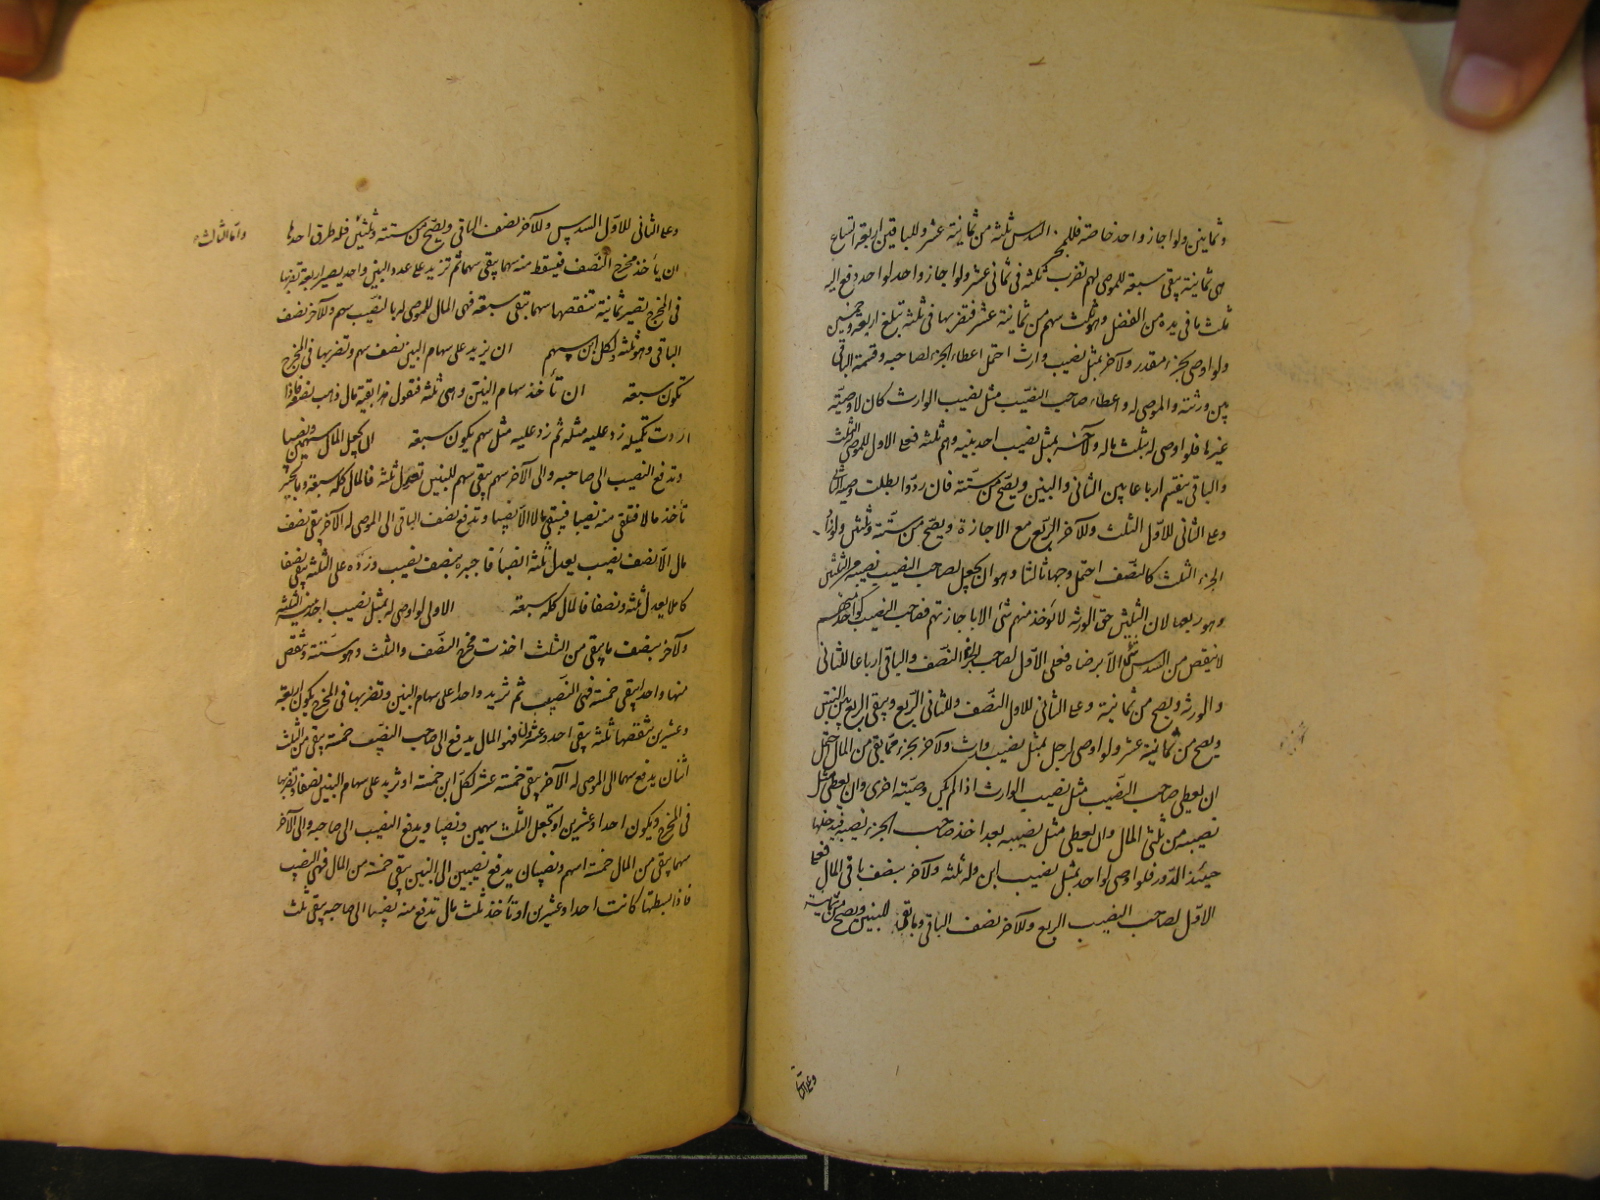 وثمانين ولو اجاز واحد خاصة فللمجيز السدس ثلثة من ثمانية عشر وللباقين اربعة اتساع
هي ثمانية يبقى سبعة للموصى لهم تضرب ثلثة في ثماني عشر ولو اجاز واحد لواحد دفع اليه
ثلث ما في يده من الفضل وهو ثلث سهم من ثمانية عشر فتضربها في ثلثة تبلغ اربعة وخمسين
ولو اوصى بجزء مقدر ولآخر بمثل نصيب وارث احتمل اعطاء الجزء لصاحبه وقسمة الباقي
بين ورثته والموصى له واعطاء صاحب النصيب مثل نصيب الوارث كان لا وصيّة
غيرها فلو اوصى له بثلث ماله ولآخر بمثل نصيب احد بنيه وهم ثلثة فعلى الاول للموصى له الثلث
والباقي يقسم ارباعا بين الثاني والبنين ويصحّ من ستّة فان ردّوا بطلت وصية الثاني
وعلى الثاني للاوّل الثلث وللآخر الربع مع الاجازة ويصحّ من ستّة وثلثين ولو زاد
الجزء الثلث كالنصف احتمل وجها ثالثا وهو ان يجعل لصاحب النصيب نصيبه من الثلثين
وهو ربعها لان الثلثين حق الورثة لا يؤخذ منهم شئ الا باجازتهم فصاحب النصيب كواحد منهم
لا ينقص من السدس شئ الا برضاه فعلى الاوّل لصاحب الجزء النصف والباقي ارباعا للثاني
والورثة ويصح من ثمانية وعلى الثاني للاول النصف وللثاني الربع ويبقى الربع بين البنين
ويصح من ثمانية عشر ولو اوصى لرجل بمثل نصيب وارث ولآخر بجزء مما بقى من المال احتمل
ان يعطى صاحب النصيب مثل نصيب الوارث اذا لم يكن وصيّة اخرى وان يعطى مثل
نصيبه من ثلثي المال وان يعطى مثل نصيبه بعد اخذ صاحب الجزء نصيبه فيدخلها
حينئذ الدور فلو اوصى لواحد بمثل نصيب ابن وله ثلثة ولآخر بنصف باقي المال فعلى
الاوّل لصاحب النصيب الربع وللآخر نصف الباقي وما بقى للبنين ويصح من ثمانية
وعلى الثاني
وعلى الثاني للاوّل السدس وللآخر نصف الباقي ويصحّ من ستة وثلثين فله طرق احدها
واما الثالث
ان يأخذ مخرج النصف فيسقط منه سهما يبقى سهما ثم تزيد على عدد البنين واحد يصير اربعة تضربها
في المخرج تصير ثمانية تنقصها سهما تبقى سبعة فهى المال للموصى له بالنصيب سهم وللآخر نصف
الباقي وهو ثلثة ولكل ابن سهم ان يزيد على سهام البنين نصف سهم وتضربها في المخرج
تكون سبعة ان تأخذ سهام البنين وهى ثلثة فتقول هذا بقية مال ذهب نصفه فاذا
اردت تكميله زد عليه مثله ثم زد عليه مثل سهم يكون سبعة ان يجعل المال سهمين ونصيبا
وتدفع النصيب الى صاحبه والى الآخر سهم يبقى سهم للبنين تعدل ثلثة فالمال كله سبعة وبالجبر
تأخذ مالا فتلقى منه نصيبا فيبقى مالا الا نصيبا وتدفع نصف الباقي الى الموصى له الآخر يبقى نصف
مال الا نصف نصيب يعدل ثلثة انصبا فاجبره بنصف نصيب وزده على الثلثة يبقى نصفا
كاملا يعدل ثلثة ونصفا فالمال كله سبعة الاول لو اوصى له بمثل نصيب احد بنيه الثلثة
ولآخر بنصف ما يبقى من الثلث اخذت مخرج النصف والثلث وهو ستة وتنقص
منها واحد يبقى خمسة فهى النصيب ثم تزيد واحدا على سهام البنين وتضربها في المخرج يكون اربعة
وعشرين تنقصها ثلثة يبقى احد وعشرون فهو المال يدفع الى صاحب النصيب خمسة يبقى من الثلث
اثنان يدفع سهما الى الموصى له الآخر يبقى خمسة عشر لكل ابن خمسة او تزيد على سهام البنين نصفا وتضربها
في المخرج ويكون احدا وعشرين او تجعل الثلث سهمين ونصيبا ويدفع النصيب الى صاحبه والى الآخر
سهما يبقى من المال خمسة اسهم ونصيبان يدفع نصيبين الى البنين يبقى خمسة من المال فهى النصيب
فاذا بسطتها كانت احدا وعشرين او تأخذ ثلث مال تدفع منه نصيبا الى صاحبه يبقى ثلث